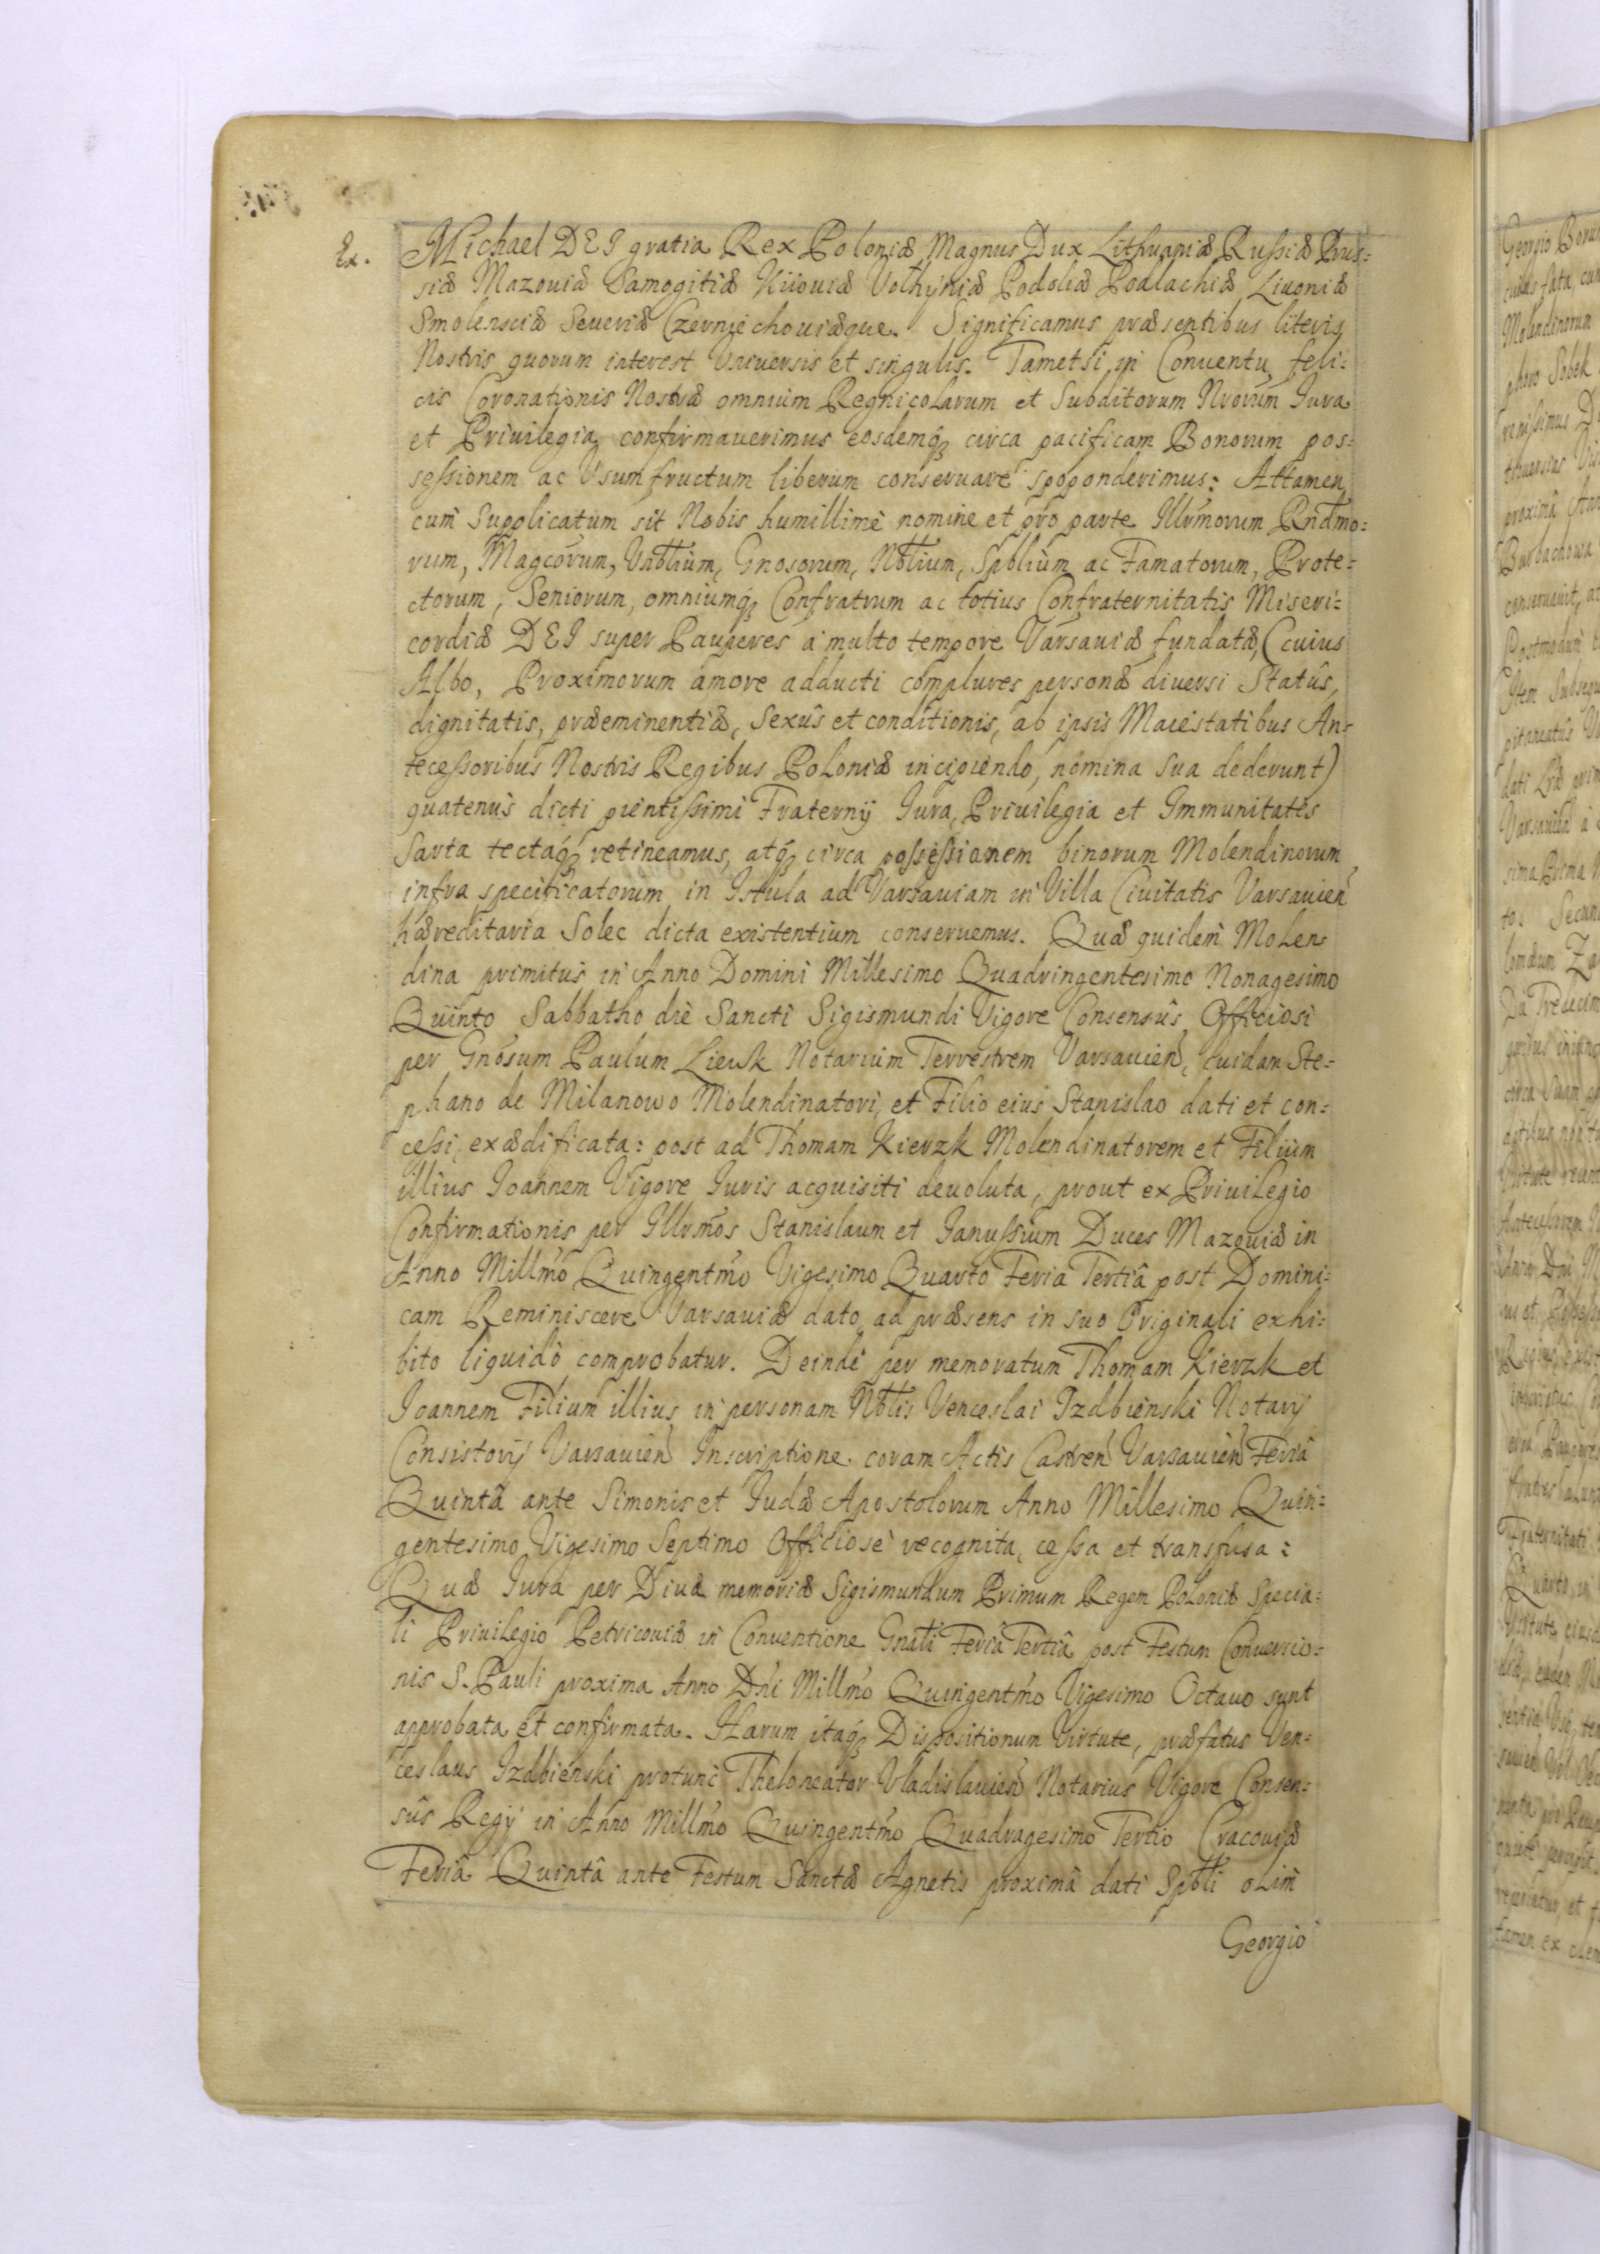 Ex.
Michael DEI gratia Rex Poloniæ Magnus Dux Lithuaniæ Russiæ Prus:
siæ Mazouiæ Samogitiæ Kiiouiæ Volhyniæ Podoliæ Podlachiæ Liuoniæ
Smolensciæ Seueriæ Czerniechouiæque. Significamus præsentibus literis
Nostris quorum interest Vniuersis et singulis. Tametsi in Conuentu feli:
cis Coronationis Nostræ omnium Regnicolarum et Subditorum Nrorum Iura
et Priuilegia confirmauerimus eosdemq circa pacificam Bonorum pos:
sessionem ac Vsumfructum liberum conseruare spoponderimus: Attamen
cum Supplicatum sit Nobis humillimè nomine et pro parte Illrmorum Rndmo:
rum, Magcorum, Vrbblium, Gnosorum, Nbblium, Spblium ac Famatorum, Prote:
ctorum, Seniorum, omniumq Confratrum ac totius Confraternitatis Miseri:
cordiæ DEI super Pauperes a multo tempore Varsauiæ fundatæ, (cuius
Albo, Proximorum amore adducti complures personæ diuersi Statûs,
dignitatis, præeminentiæ, Sexûs et conditionis, ab ipsis Maiestatibus An:
tecessoribus Nostris Regibus Poloniæ incipiendo, nomina sua dederunt)
quatenus dicti pientissimi Fraternij Iura, Priuilegia et Immunitates
Sarta tectaq retineamus, atq circa possessionem binorum Molendinorum
infra specificatorum in Istula ad Varsauiam in Villa Ciuitatis Varsauien
hæreditaria Solec dicta existentium conseruemus. Quæ quidem Molen:
dina primitus in Anno Domini Millesimo Quadringentesimo Nonagesimo
Quinto Sabbatho die Sancti Sigismundi Vigore Consensûs Officiosi
per Gnosum Paulum Liewsk Notarium Terrestrem Varsauien, cuidam Ste:
phano de Milanowo Molendinatori et Filio eius Stanislao dati et con:
cessi, exædificata: post ad Thomam Kierzk Molendinatorem et Filium
illius Ioannem Vigore Iuris acquisiti deuoluta, prout ex Priuilegio
Confirmationis per Illrmos Stanislaum et Ianussium Duces Mazouiæ in
Anno Millmo Quingentmo Vigesimo Quarto Feria Tertiâ post Domini:
cam Reminiscere Varsauiæ dato, ad præsens in suo Originali exhi:
bito liquidò comprobatur. Deinde per memoratum Thomam Kierzk et
Ioannem Filium illius in personam Nbblis Venceslai Izdbienski Notarij
Consistorij Varsauien Inscriptione coram Actis Castren Varsauien Feriâ
Quintâ ante Simonis et Iudæ Apostolorum Anno Millesimo Quin:
gentesimo Vigesimo Septimo Officiosè recognita, cessa et transfusa:
Quæ Iura per Diuæ memoriæ Sigismundum Primum Regem Poloniæ Specia:
li Priuilegio Petricouiæ in Conuentione Gnali Feriâ Tertiâ post Festum Conuersio:
nis S. Pauli proxima Anno Dni Millmo Quingentmo Vigesimo Octauo sunt
approbata et confirmata. Harum itaq Dispositionum Virtute, præfatus Ven:
ceslaus Izdbienski protunc Theloneator Vladislauien Notarius Vigore Consen:
sûs Regij in Anno Millmo Quingentmo Quadragesimo Tertio Cracouiæ
Feriâ Quintâ ante Festum Sanctæ Agnetis proximâ dati Spbli olim
Georgio